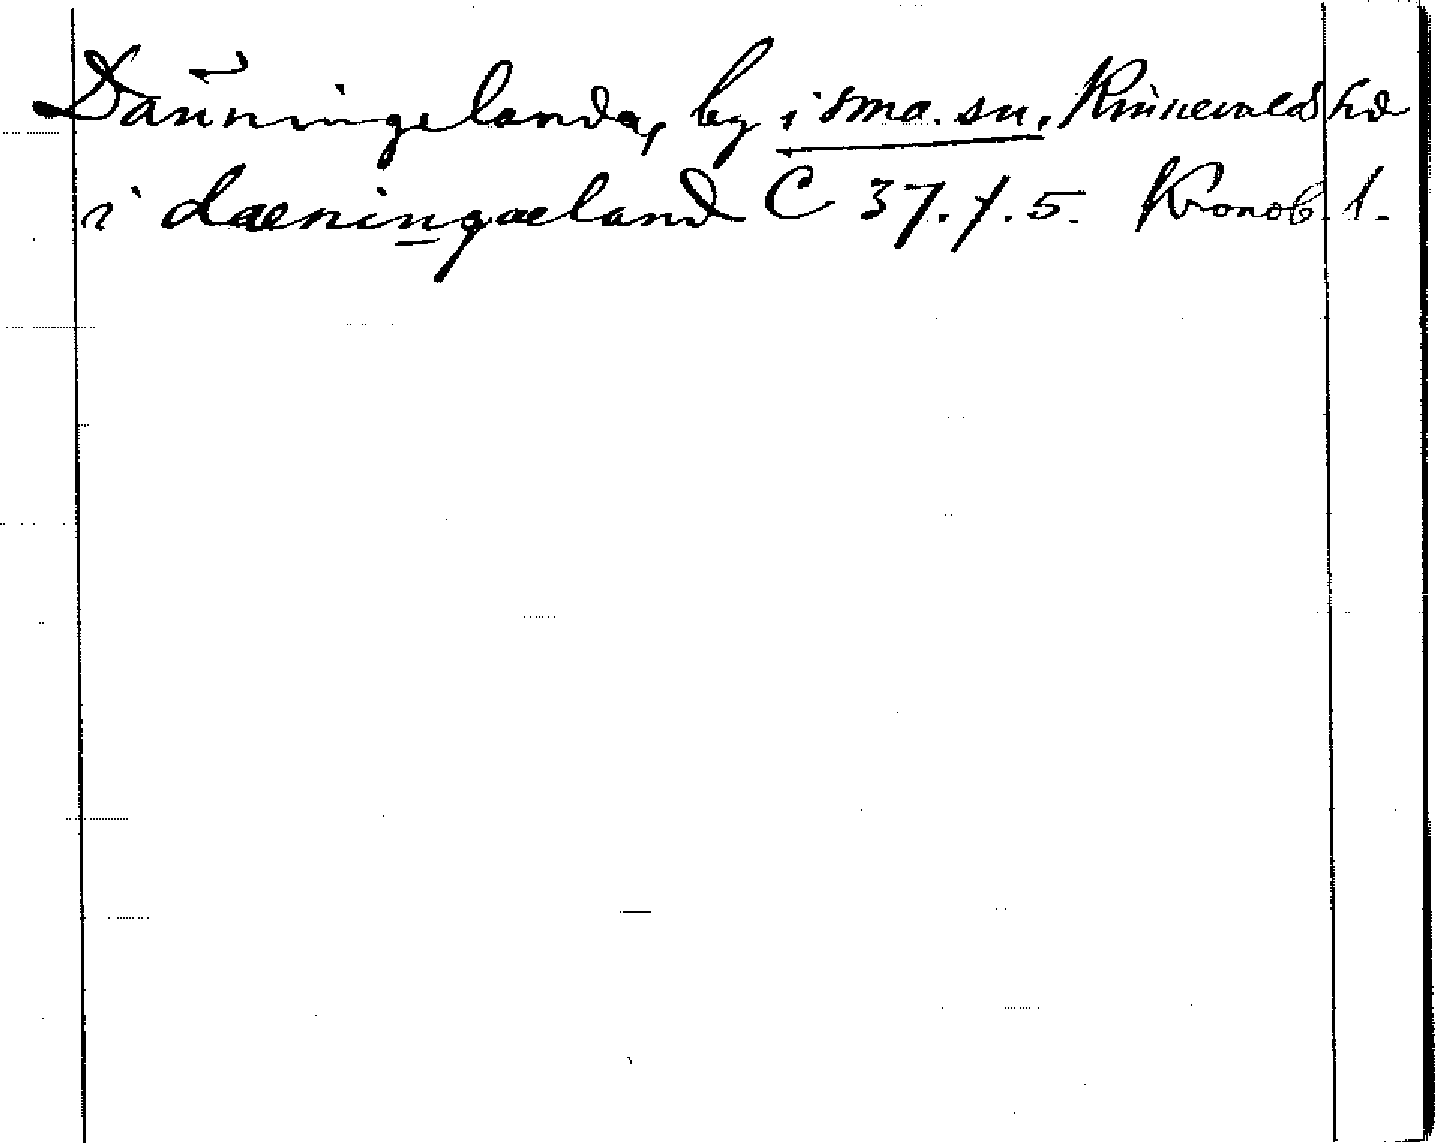 Dänningelanda, by i sma. sn. Kinnevalds hd
i daeningaeland C 37. f. 5. Kronob. l.